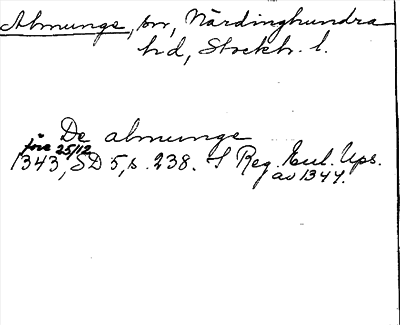 Almunge, sn, Närdinghundra
hd, Stockh. l.
De almunge
före 25/12
1343, SD 5, s. 238. I Reg. Eccl. Ups.
av 1344.